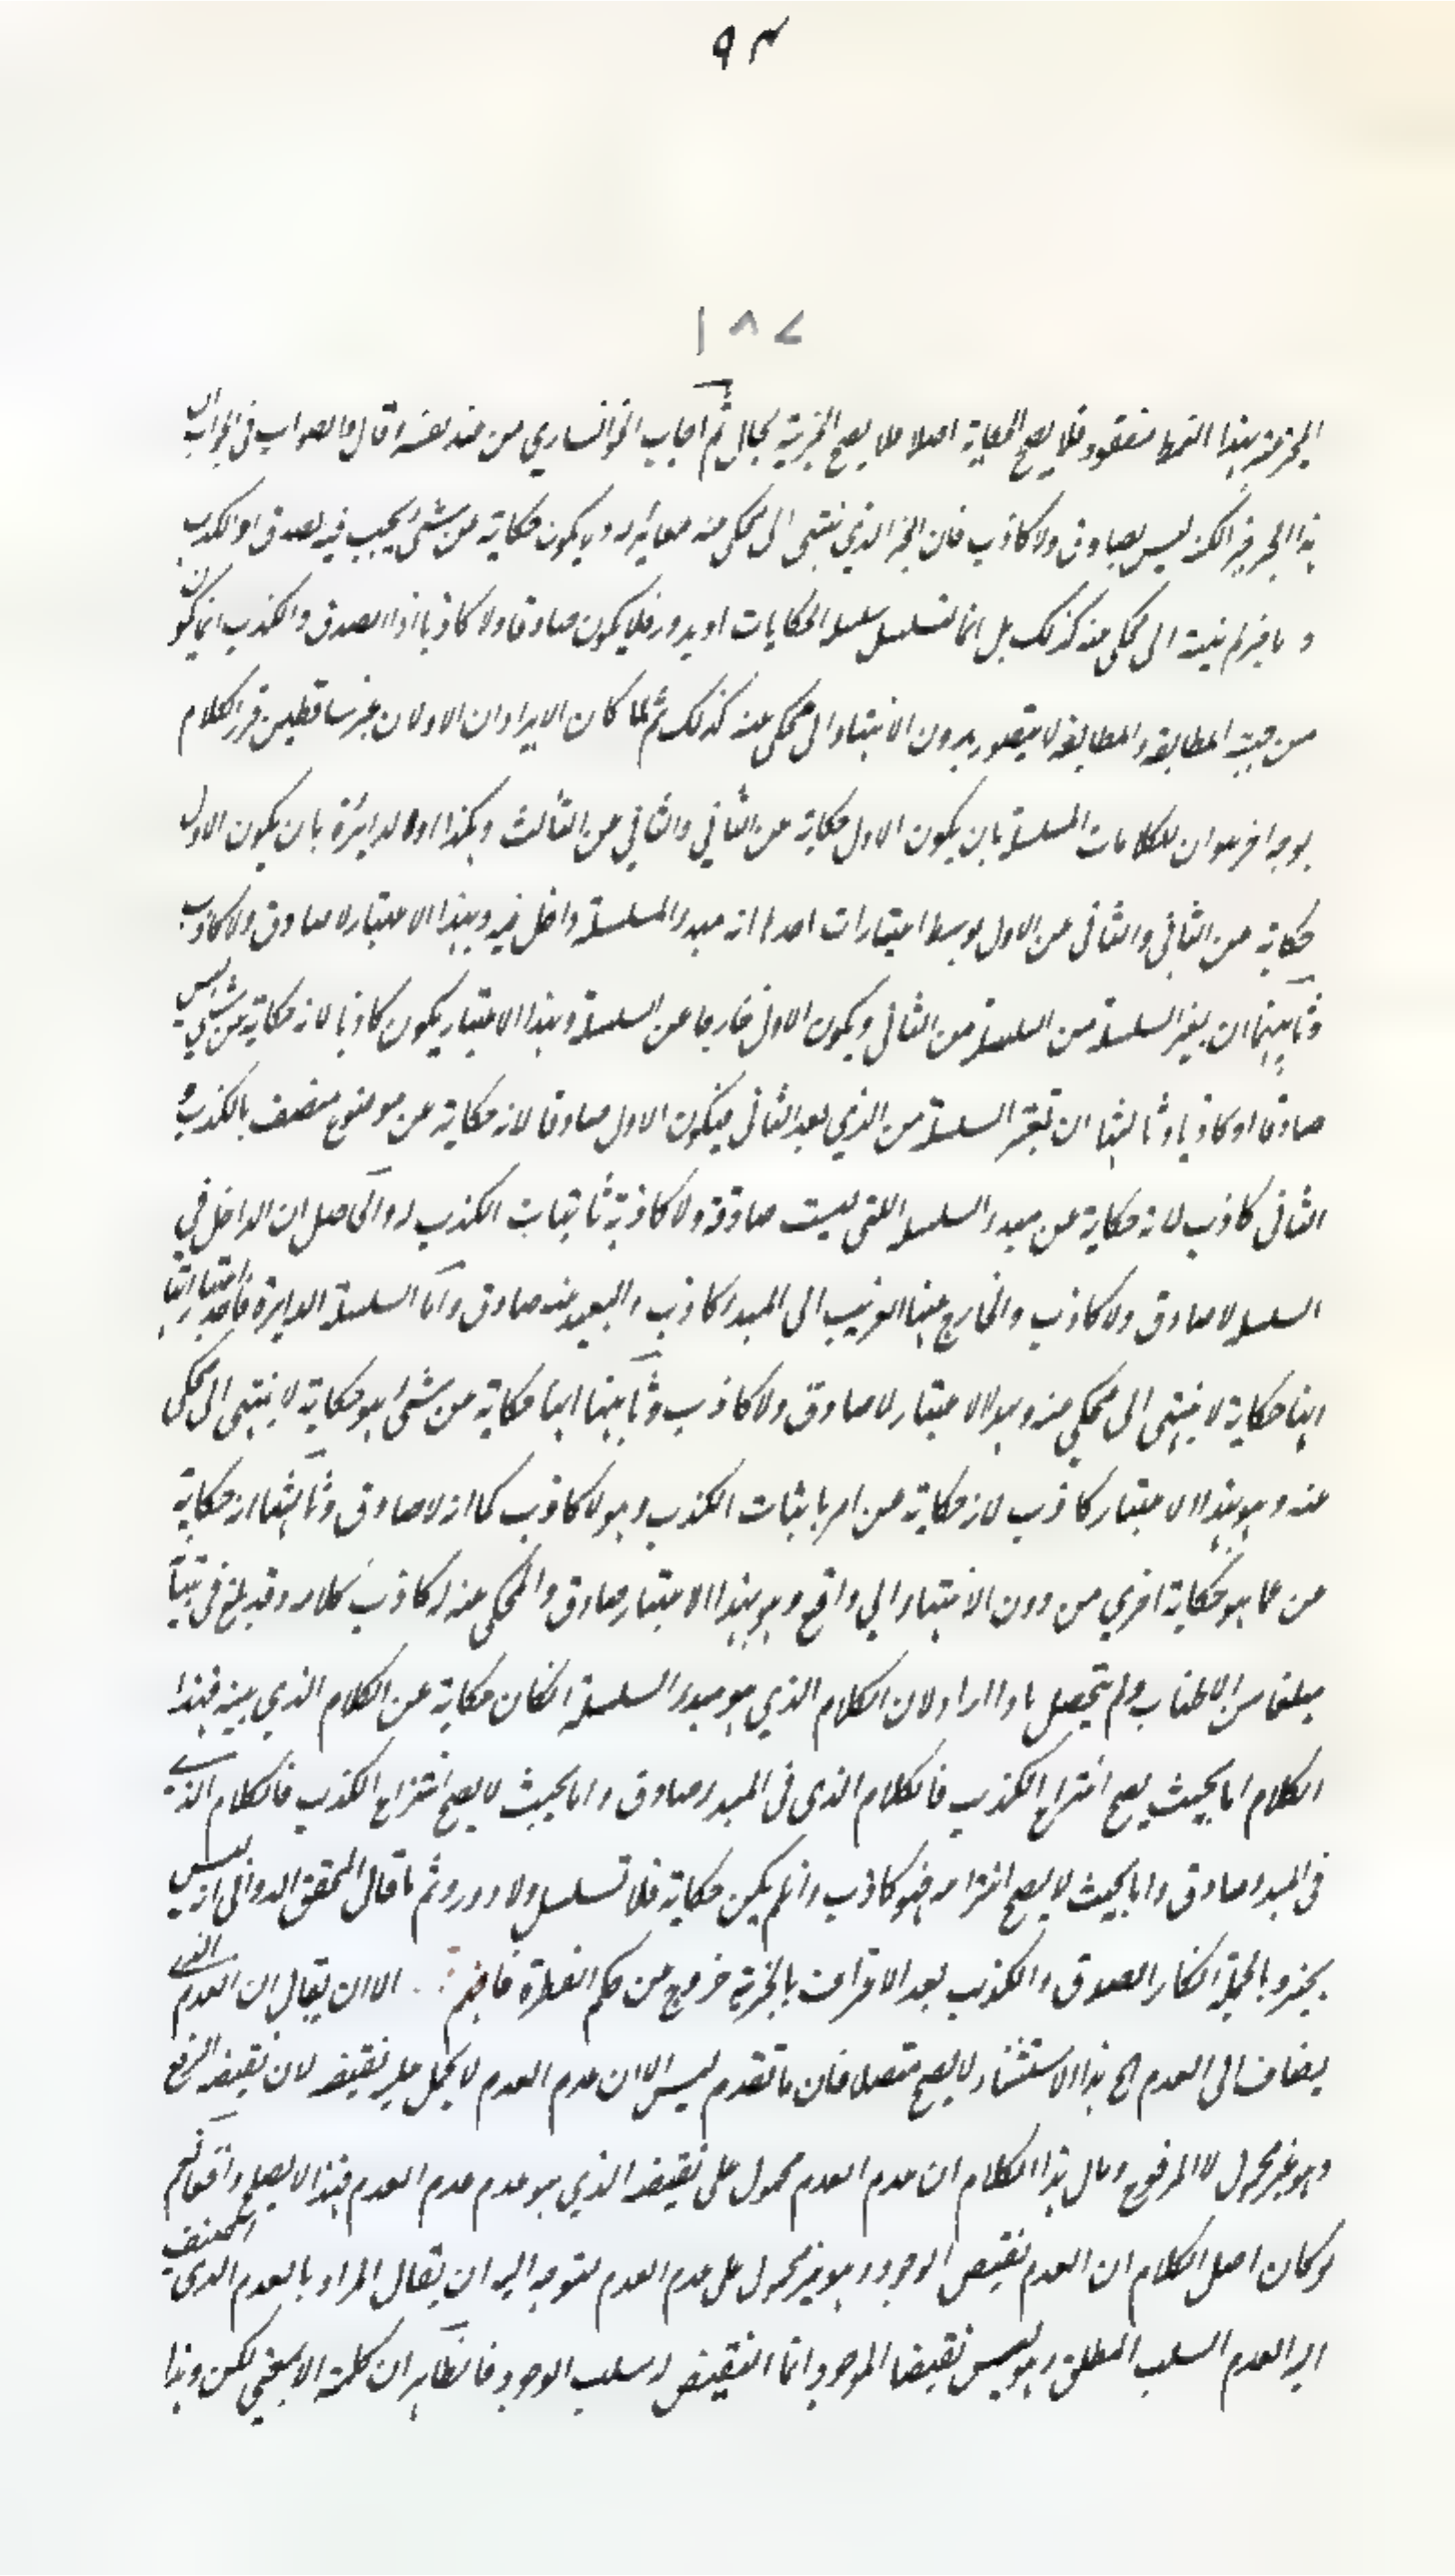 ٩٣
١٨٧
الخبرية بهذا النحو مفقود فلا يصح الحكاية اصلا فلا يصح الخبرية بحال ثم اجاب الخوانساري من عند نفسه وقال فالصواب في الجواب ان
هذا الخبر خبر لكنه ليس بصادق ولا كاذب فان الخبر الذي ينتهى الى محكى عنه مغاير له ويكون حكاية عن شئ يجب فيه الصدق او الكذب
و ما خبر لم ينته الى محكى عنه كذلك بل انما تتسلسل سلسلة الحكايات او يدور فلا يكون صادقا ولا كاذبا اذ الصدق والكذب انما يكون
من جهة المطابقة والمطابقة لا يتصور بدون الانتهاء الى محكى عنه كذلك ثم لما كان الايرادان الاولان غير ساقطين قرر الكلام
بوجه اخر هو ان للكلامات المسلسلة بان يكون الاول حكاية عن الثاني والثاني عن الثالث وهكذا او الدايرة بان يكون الاول
حكاية عن الثاني والثاني عن الاول اعتبارات احدها انه مبدء السلسلة داخل فيه وبهذا الاعتبار لا صادق ولا كاذب
وثانيهما ان يعتبر السلسلة من الثاني ويكون الاول خارجا عن السلسلة وبهذا الاعتبار يكون كاذبا لانه حكاية عن شئ ليس
صادقا او كاذبا وثالثها ان تعتبر السلسلة من الذي بعد الثاني فيكون الاول صادقا لانه حكاية عن موضوع متصف بالكذب و
الثاني كاذب لانه حكاية عن مبدء السلسلة التي ليست صادقة ولا كاذبة باثبات الكذب له والحاصل ان الداخل في
السلسلة لا صادق ولا كاذب والخارج عنها القريب الى المبدء كاذب والبعيد عنه صادق واما السلسلة الدايرة فاحد اعتباراتها
انها حكاية لا ينتهى الى محكى عنه وبهذا الاعتبار لا صادق ولا كاذب وثانيها انها حكاية عن شئ هو حكاية لا ينتهى الى محكى
عنه وهو بهذا الاعتبار كاذب لانه حكاية عن امر باثبات الكذب وهو لا كاذب كما انه لا صادق وثالثها انه حكاية
عن ما هو حكاية اخري من دون الانتهاء الي واقع وهو بهذا الاعتبار صادق والمحكى عنه له كاذب كلامه وقد بلغ في
مبلغا من الاطناب ولم يتحصل ما اراد لان الكلام الذي هو مبدء السلسلة لكان حكاية عن الكلام الذي فهذا
الكلام اما بحيث يصح انتزاع الكذب فالكلام الذي في المبدء صادق و اما بحيث لا يصح انتزاع الكذب فالكلام الذي
في المبدء صادق واما بحيث لا يصح انتزاعه فهو كاذب وان لم يكن حكاية فلا تسلسل ولا دور ثم ما قال المحقق الدواني انه ليس
بخبر وبالجملة انكار الصدق والكذب بعد الاعتراف بالخبرية خروج عن حكم الفطرة فافهم الا ان يقال ان العدم الذي
يضاف الى العدم الخ هذا الاستثناء لا يصح متصلا فان ما تقدم ليس الا ان عدم العدم لا يحمل على نقيضه لان نقيضه الرفع
وهو غير محمول لا المرفوع ومال هذا الكلام ان عدم العدم محمول على نقيضه الذي هو عدم عدم العدم فهذا لا يصلح نعم
لو كان اصل الكلام ان العدم نقيض الوجود وهو غير محمول على عدم العدم لتوجه اليه ان يقال المراد بالعدم الذي اضيف
اليه العدم السلب المطلق وهو ليس نقيضا للوجود انما النقيض له سلب الوجود فالظاهر ان كلمة الا بمعني لكن وهذا